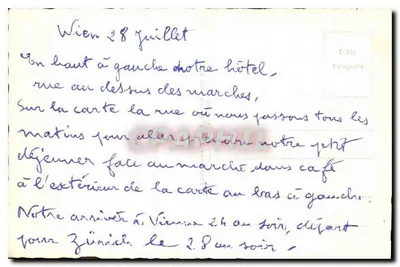 Wien 28 Juillet
Echte
Fotografie
En haut à gauche notre hôtel,
rue au dessus des marches,
Sur la carte la rue où nous passons tous les
matins pour aller prendre notre ptit
déjeuner face au marché, dans café
à l'extérieur de la carte au bas à gauche.
Notre arrivée à Vienne 24 au soir, départ
pour Zürich le 28 au soir.